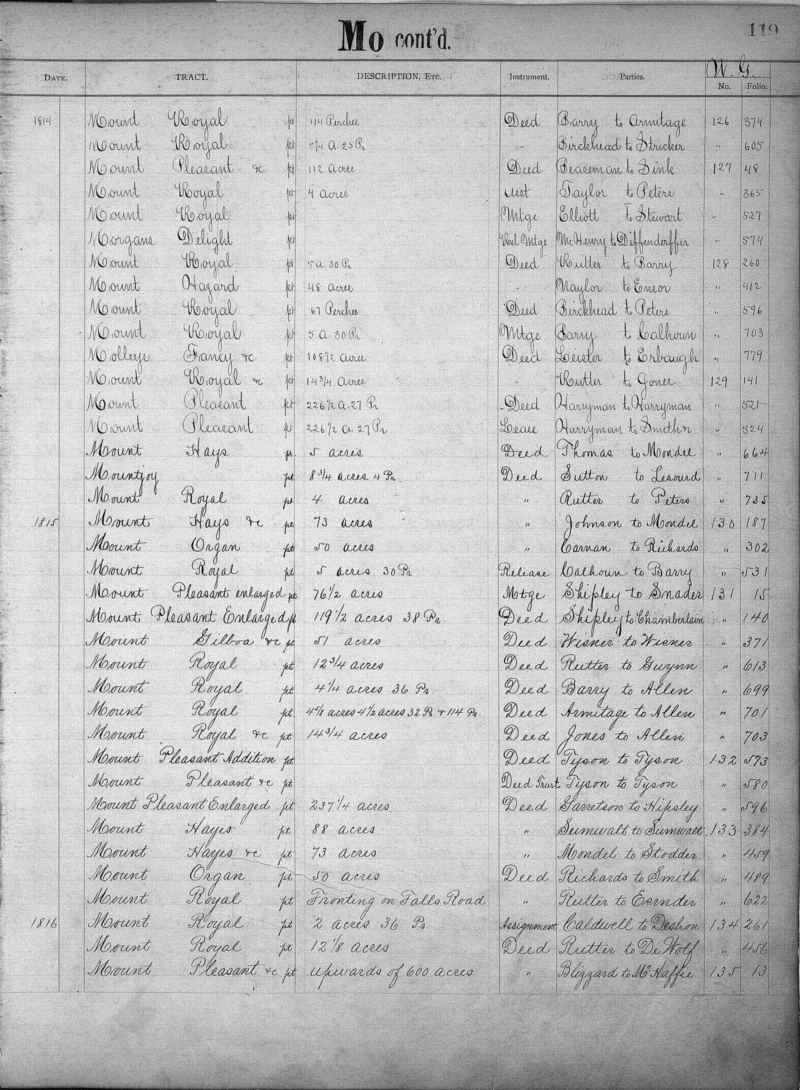 Mo cont'd.
119
W. G.
DATE. TRACT. DESCRIPTION, ETC. Instrument. Parties. No. Folio.
1814 Mount Royal pt 114 Perches Deed Barry to Armitage 126 374
Mount Royal pt 5¼ a. 25 Ps " Birckhead to Stricker " 605
Mount Pleasant &c pt 112 acres Deed Peaseman to Sink 127 48
Mount Royal pt 4 acres Taylor to Peters " 365
Mount Royal pt Mtge Elliott to Stewart " 527
Morgans Delight pt Mtge McHenry to Diffenderffer " 574
Mount Royal pt 5 a. 30 Ps Deed Rutter to Barry 128 260
Mount Hazard pt 48 acres " Naylor to Ensor " 412
Mount Royal pt 67 Perches Deed Birckhead to Peters " 596
Mount Royal pt 5 a. 30 Ps Mtge Barry to Calhoun " 703
Molleys Fancy &c pt 108½ acres Deed Lester to Erbaugh " 779
Mount Royal &c pt 14¾ acres " Rutter to Jones 129 141
Mount Pleasant pt 226½ a. 27 Ps Deed Harryman to Harryman " 521
Mount Pleasant pt 226½ a. 27 Ps Lease Harryman to Smith &c " 524
Mount Hays pt. 5 acres Deed Thomas to Mondel " 664
Mountjoy pt 8¾ acres 4 Ps Deed Sutton to Lesourd " 711
Mount Royal pt 4 acres " Rutter to Peters " 735
1815 Mount Hays &c pt 73 acres " Johnson to Mondel 130 187
Mount Organ pt 50 acres " Carnan to Richards " 302
Mount Royal pt 5 acres 30 Ps Release Calhoun to Barry " 531
Mount Pleasant enlarged pt 76½ acres Mtge Shipley to Snader 131 15
Mount Pleasant Enlarged pt 119½ acres 38 Ps Deed Shipley to Chamberlain " 140
Mount Gilboa &c pt 51 acres Deed Wisner to Wisner " 371
Mount Royal pt 12¾ acres Deed Rutter to Gwynn " 613
Mount Royal pt 4¼ acres 36 Ps Deed Barry to Allen " 699
Mount Royal pt acres 4½ acres 32 Ps & 114 Ps Deed Armitage to Allen " 701
Mount Royal &c pt 14¾ acres Deed Jones to Allen " 703
Mount Pleasant Addition pt Deed Tyson to Tyson 132 573
Mount Pleasant &c pt Deed Trust Tyson to Tyson " 580
Mount Pleasant Enlarged pt 237¼ acres Deed Garretson to Hipsley " 596
Mount Hayes pt 88 acres " Sumwalt to Sumwalt 133 384
Mount Hayes &c pt 73 acres " Mondel to Stodder " 459
Mount Organ pt 50 acres Deed Richards to Smith " 489
Mount Royal pt Fronting on Falls Road " Rutter to " 622
1816 Mount Royal pt 2 acres 36 Ps Assignment Caldwell to Deshon 134 261
Mount Royal pt 12⅛ acres Deed Rutter to De Wolf " 456
Mount Pleasant &c pt upwards of 600 acres " Blizzard to McHaffie 135 13